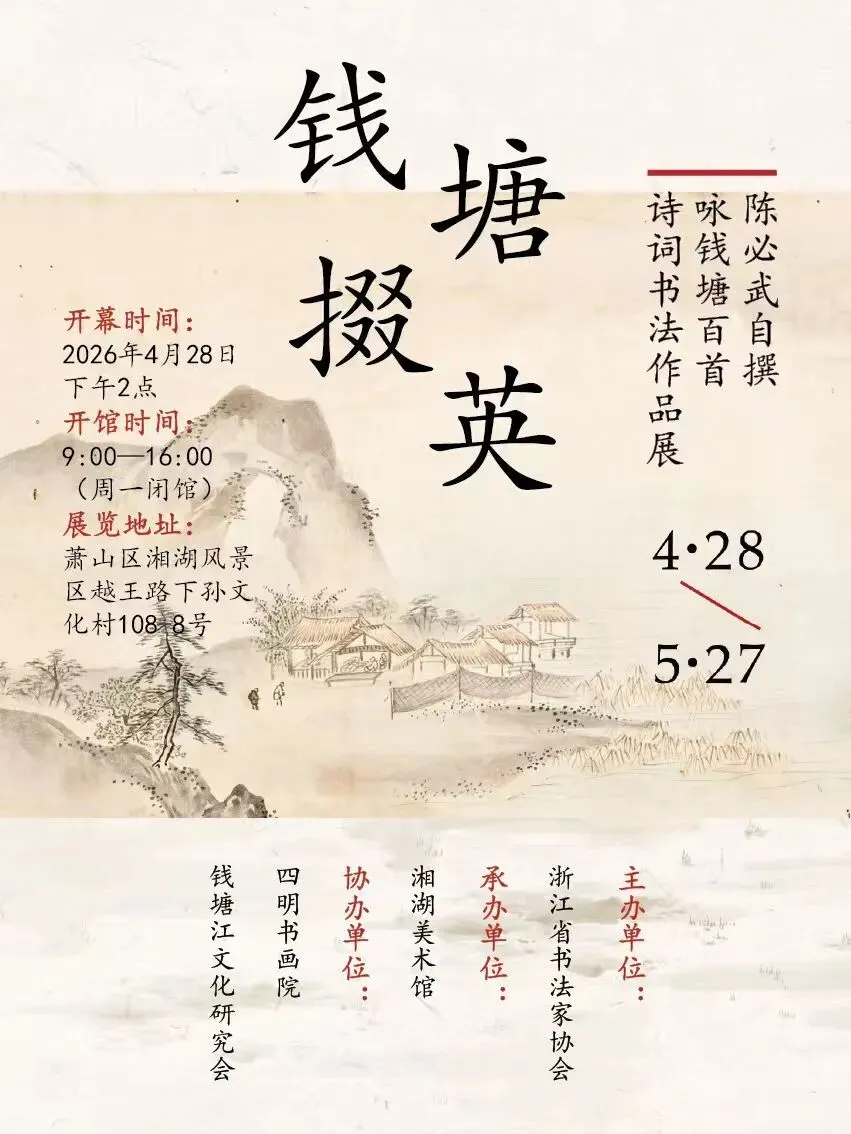 钱塘掇英
陈必武自撰
咏钱塘百首
诗词书法作品展
4·28
5·27
开幕时间：
2026年4月28日
下午2点
开馆时间：
9:00—16:00
（周一闭馆）
展览地址：
萧山区湘湖风景
区越王路下孙文
化村108-8号
主办单位：
浙江省书法家协会
承办单位：
湘湖美术馆
协办单位：
四明书画院
钱塘江文化研究会